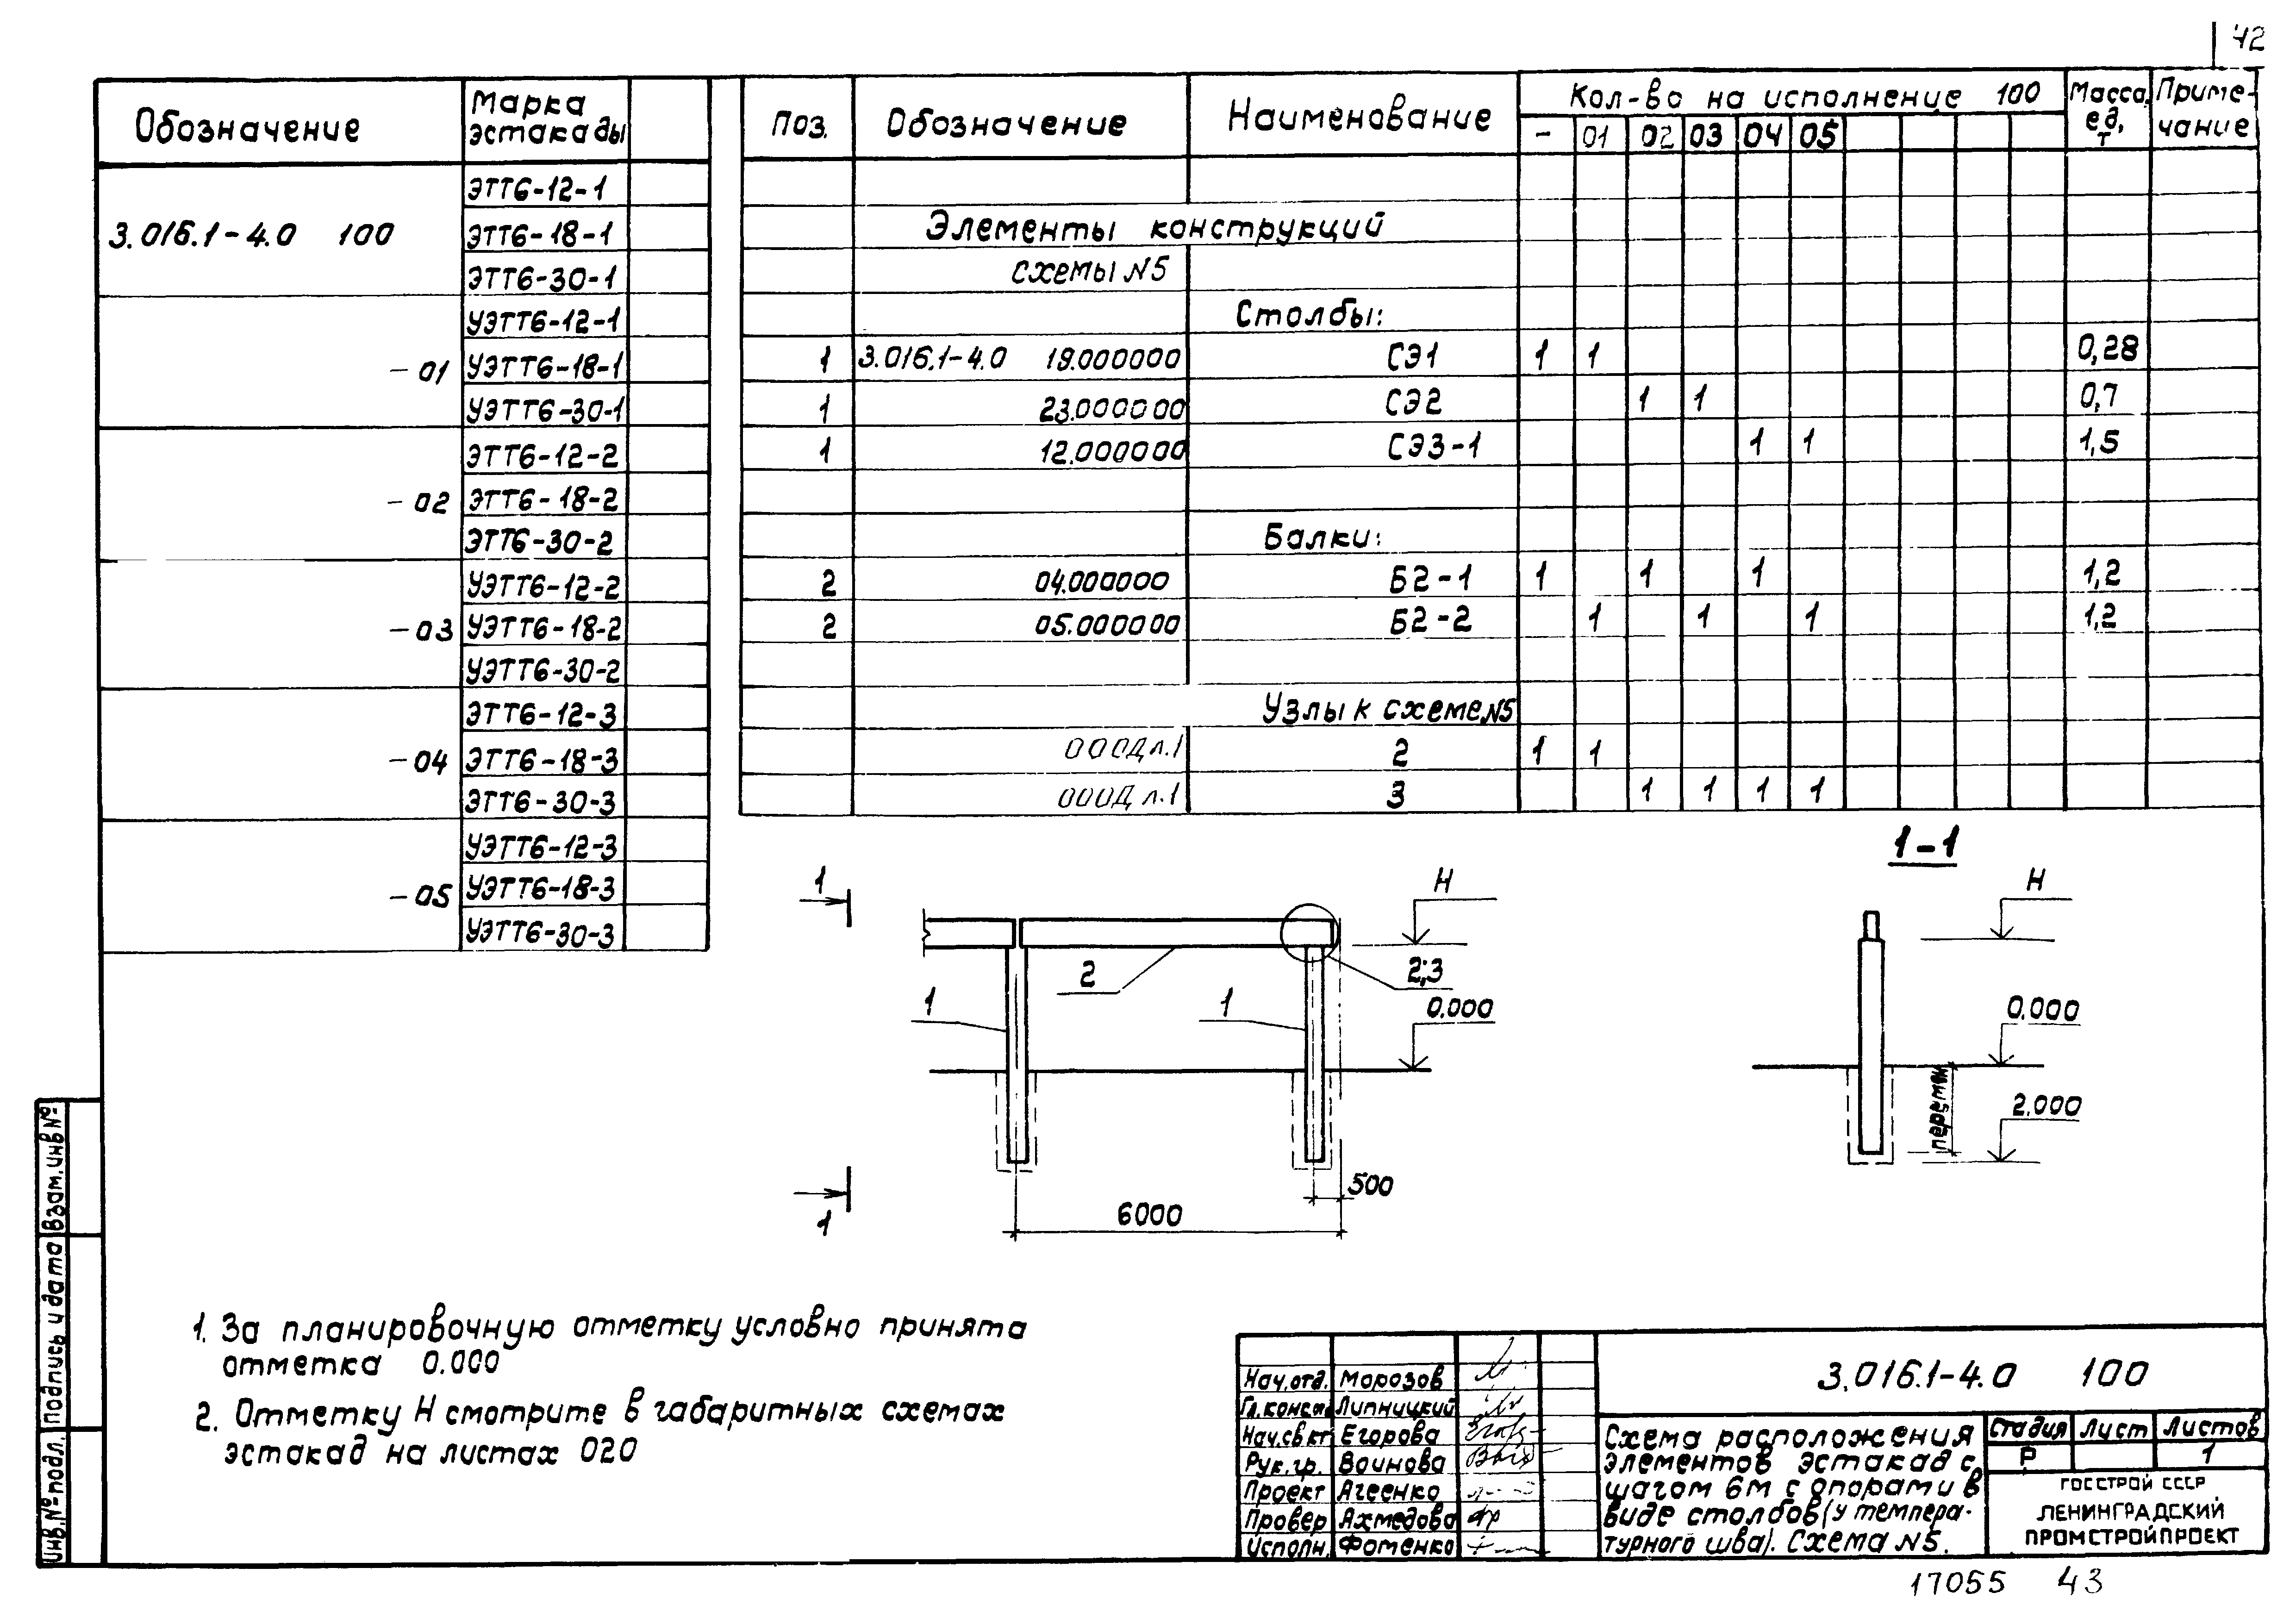 42
Обозначение
Марка эстакады
3.016.1-4.0 100
ЭТТ6-12-1
ЭТТ6-18-1
ЭТТ6-30-1
-01
УЭТТ6-12-1
УЭТТ6-18-1
УЭТТ6-30-1
-02
ЭТТ6-12-2
ЭТТ6-18-2
ЭТТ6-30-2
-03
УЭТТ6-12-2
УЭТТ6-18-2
УЭТТ6-30-2
-04
ЭТТ6-12-3
ЭТТ6-18-3
ЭТТ6-30-3
-05
УЭТТ6-12-3
УЭТТ6-18-3
УЭТТ6-30-3
Поз. Обозначение Наименование Кол-во на исполнение 100 Масса ед, т Приме-чание
- 01 02 03 04 05
Элементы конструкций
схемы N5
Столбы:
1 3.016.1-4.0 19.000000 СЭ1 1 1 0,28
1 23.000000 СЭ2 1 1 0,7
1 12.000000 СЭ3-1 1 1 1,5
Балки:
2 04.000000 Б2-1 1 1 1 1,2
2 05.000000 Б2-2 1 1 1 1,2
Узлы к схеме N5
000Д л.1 2 1 1
000Д л.1 3 1 1 1 1
1
Н
2
2;3
1
1
0.000
500
6000
1
1-1
Н
0.000
перемен
2.000
1. За планировочную отметку условно принята
отметка 0.000
2. Отметку Н смотрите в габаритных схемах
эстакад на листах 020
Инв.№ подл. Подпись и дата Взам.инв№
Нач.отд. Морозов
Гл.конст. Липницкий
Нач.св.кт Егорова
Рук.гр. Воинова
Проект Агеенко
Провер Ахмедова
Исполн. Фоменко
3.016.1-4.0 100
Схема расположения
элементов эстакад с
шагом 6м с опорами в
виде столбов (у темпера-
турного шва). Схема N5.
Стадия Лист Листов
Р 1
ГОССТРОЙ СССР
ЛЕНИНГРАДСКИЙ
ПРОМСТРОЙПРОЕКТ
17055 43